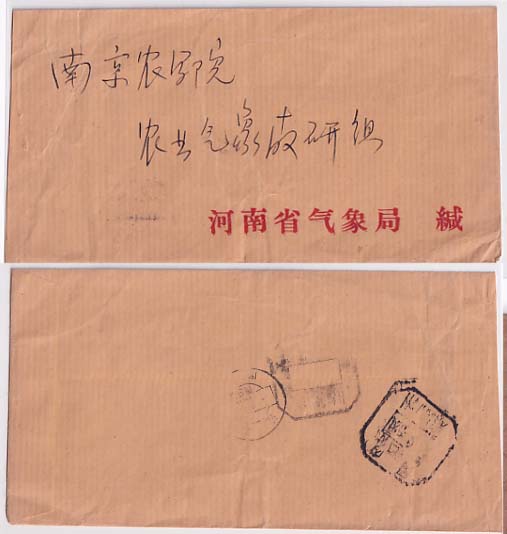 南京农学院
农业气象教研组
河南省气象局 缄